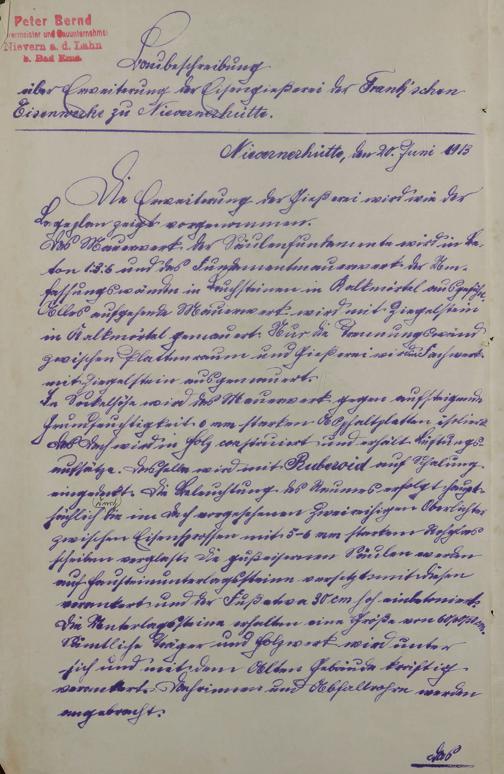 Peter Bernd
Maurermeister und Bauunternehmer
Nievern a. d. Lahn
b. Bad Ems.
Baubeschreibung
über Erweiterung der Eisengießerei der Frank'schen
Eisenwerke zu Nievernerhütte.
Nievernerhütte, den 20. Juni 1913
Die Erweiterung der Gießerei wird wie der
Lageplan zeigt vorgenommen.
Das Mauerwerk der Säulenfundamente wird in Be-
ton 1:3:6 und das Fundamentmauerwerk der Um-
fassungswände in Bruchsteinen in Kalkmörtel ausgeführt.
Alles aufgehende Mauerwerk wird mit Ziegelstein
in Kalkmörtel gemauert. Nur die Trennungswand
zwischen Plattenraum und Gießerei wird Fachwerk
mit Ziegelstein ausgemauert.
In Sockelhöhe wird das Mauerwerk gegen aufsteigende
Grundfeuchtigkeit starken Asphaltplatten isoliert
das Dach wird in Holz construiert und erhält Lüftungs-
aufsätze. Dasselbe wird mit Ruberoid auf Schalung
eingedeckt. Die Beleuchtung des Raumes erfolgt haupt-
sächlich durch die im Dach vorgesehenen Oberlichter
zwischen Eisensprossen mit 5-6 mm starkem Rohglas
scheiben verglast. Die gußeisernen Säulen werden
auf Hausteinunterlagsstein versetzt mit diesen
verankert und der Fuß etwa 30 cm hoch einbetoniert.
Die Unterlagssteine erhalten eine Größe von
Sämtliche Träger und Holzwerk wird unter
sich und mit dem Alten Gebäude kräftig
verankert. Dachrinnen und Abfallrohre werden
angebracht.
Das